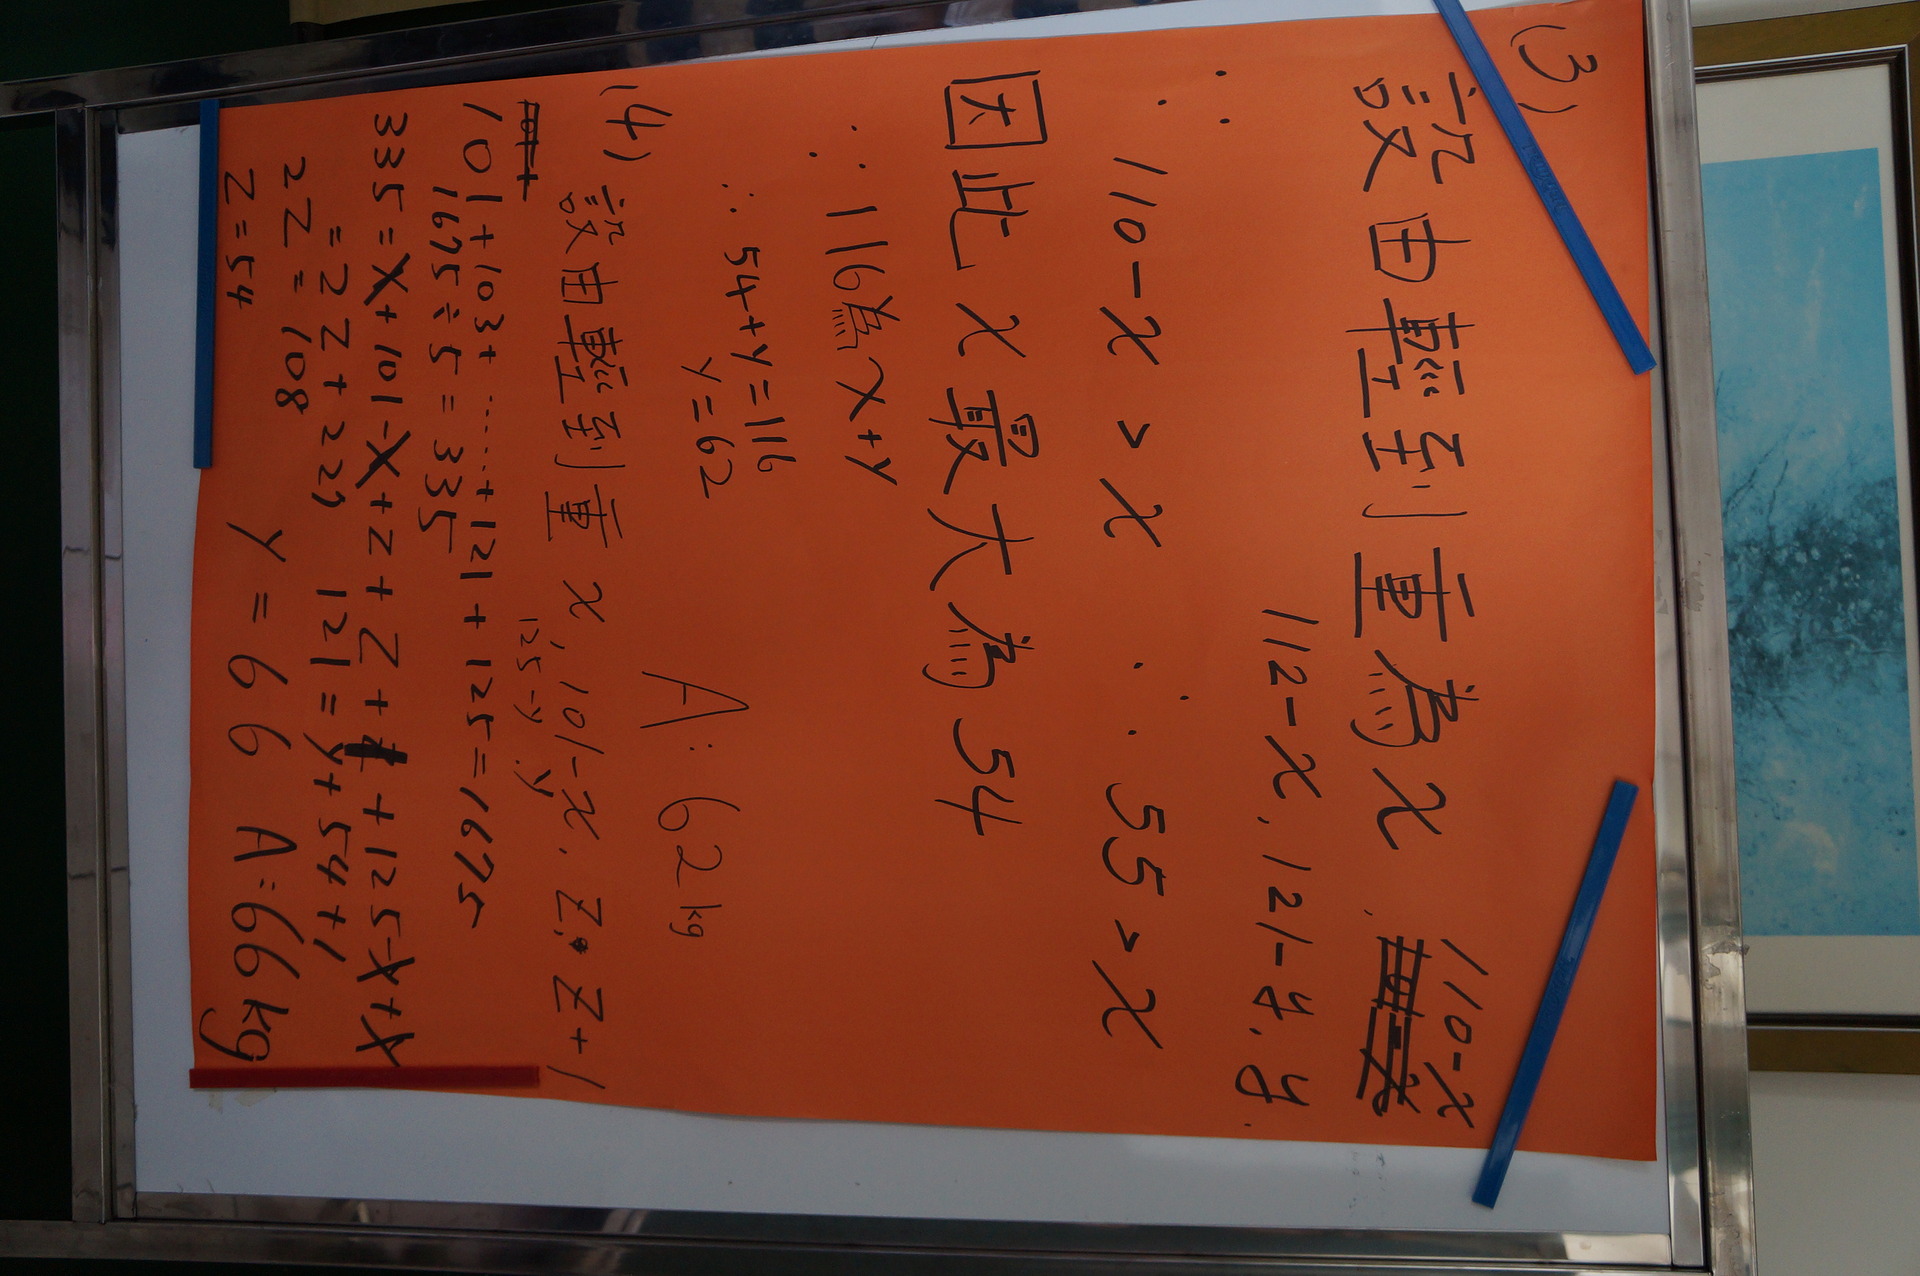 (3)
設由輕到重為x, 110-x
112-x, 121-y, y.
∵ 110-x > x ∴ 55 > x
因此 x 最大為 54
∵ 116為 x+y
∴ 54+y=116
y=62
A: 62kg
(4) 設由輕到重 x, 101-x, Z, Z+1
125-y y
101+103+......+121+125=1675
1675÷5=335
335=X+101-X+Z+Z+1+125-Y+Y
=2Z+227 121=y+54+1
2Z=108
Z=54 Y=66 A:66kg